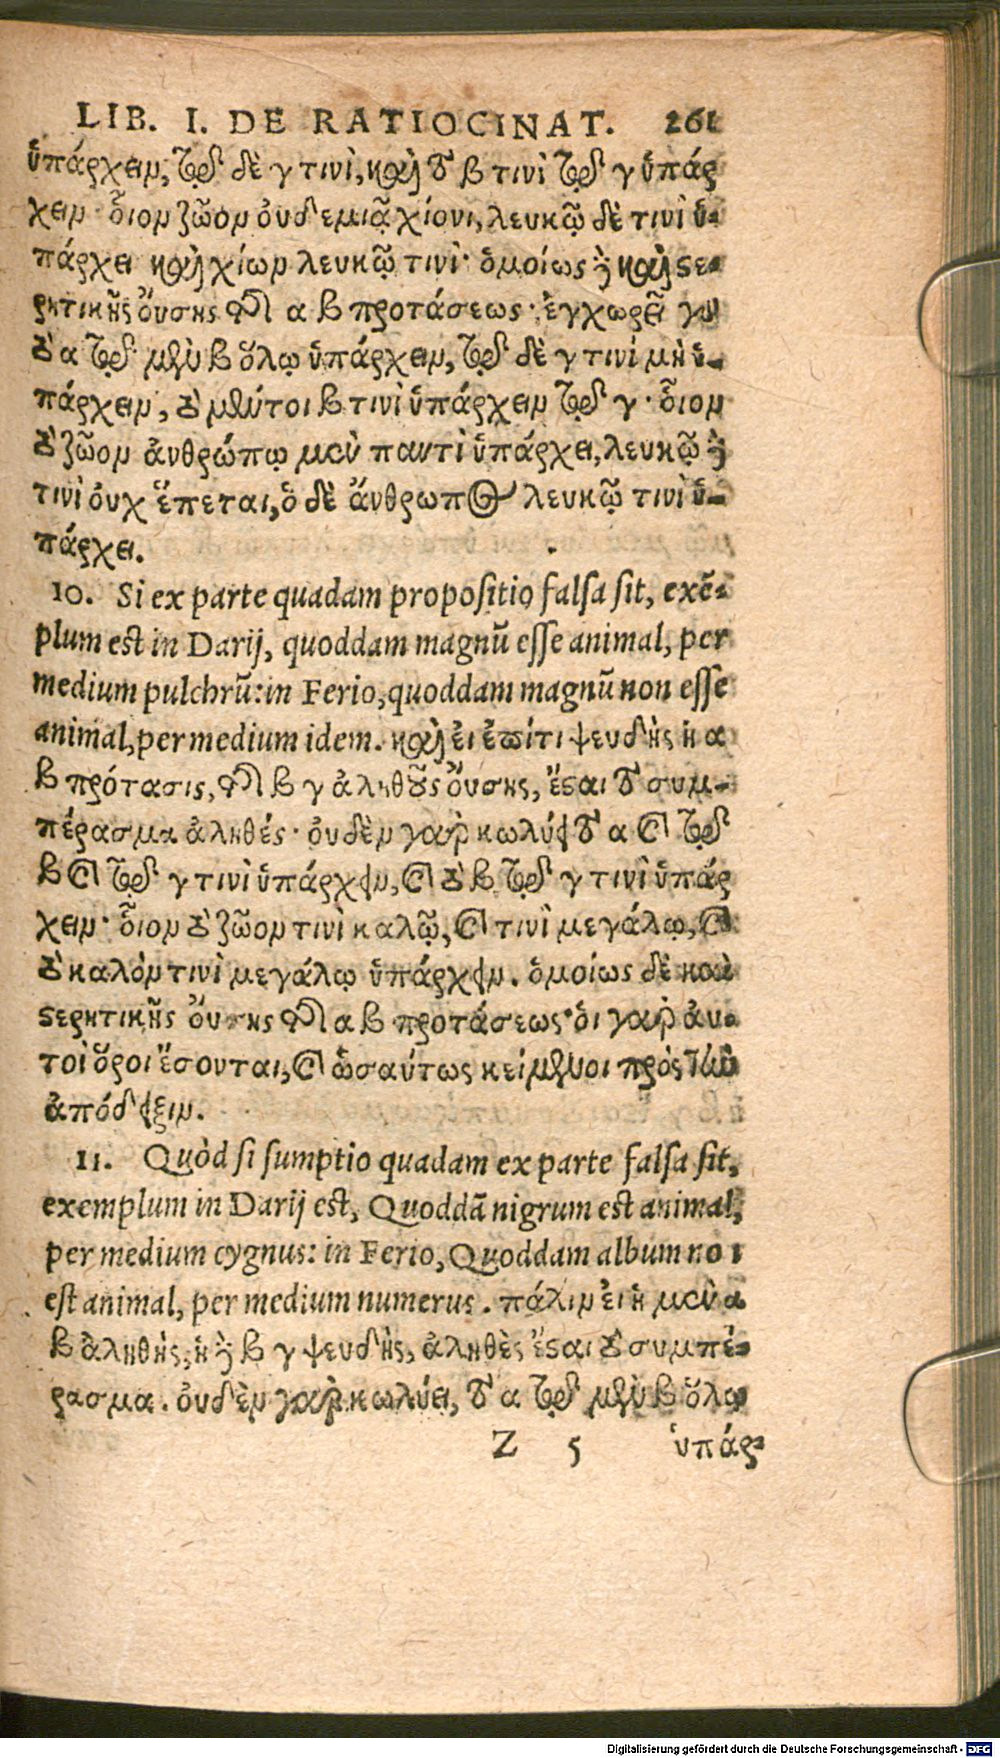 LIB. I. DE RATIOCINAT. 261
ὑπάρχειν, τῷ δὲ γ τινὶ, καὶ τὸ β τινὶ τῷ γ ὑπάρ
χειν· οἷον ζῶον οὐδεμιᾷ χίονι, λευκῷ δὲ τινὶ ὑ-
πάρχει καὶ χίων λευκῷ τινί· ὁμοίως δὲ καὶ στε-
ρητικῆς οὔσης τῆς α β προτάσεως· ἐγχωρεῖ γὰρ
τὸ α τῷ μὲν β ὅλῳ ὑπάρχειν, τῷ δὲ γ τινὶ μὴ ὑ-
πάρχειν, τὸ μέντοι β τινὶ ὑπάρχειν τῷ γ· οἷον
τὸ ζῶον ἀνθρώπῳ μὲν παντὶ ὑπάρχει, λευκῷ δὲ
τινὶ οὐχ ἕπεται, ὁ δὲ ἄνθρωπος λευκῷ τινὶ ὑ-
πάρχει.
10. Si ex parte quadam propositio falsa sit, exē-
plum est in Darij, quoddam magnū esse animal, per
medium pulchrū: in Ferio, quoddam magnū non esse
animal, per medium idem. καὶ εἰ ἐπίτι ψευδὴς ἡ α
β πρότασις, τῆς β γ ἀληθοῦς οὔσης, ἔσται τὸ συμ-
πέρασμα ἀληθές· οὐδὲν γὰρ κωλύει τὸ α καὶ τῷ
β καὶ τῷ γ τινὶ ὑπάρχειν, καὶ τὸ β τῷ γ τινὶ ὑπάρ
χειν· οἷον τὸ ζῶον τινὶ καλῷ, καὶ τινὶ μεγάλῳ, καὶ
τὸ καλὸν τινὶ μεγάλῳ ὑπάρχειν. ὁμοίως δὲ καὶ
στερητικῆς οὔσης τῆς α β προτάσεως· οἱ γὰρ αὐ-
τοὶ ὅροι ἔσονται, καὶ ὡσαύτως κείμενοι πρὸς τὴν
ἀπόδειξιν.
11. Quòd si sumptio quadam ex parte falsa sit,
exemplum in Darij est, Quoddā nigrum est animal,
per medium cygnus: in Ferio, Quoddam album non
est animal, per medium numerus. πάλιν εἰ ἡ μὲν α
β ἀληθής, ἡ δὲ β γ ψευδὴς, ἀληθὲς ἔσται τὸ συμπέ-
ρασμα. οὐδὲν γὰρ κωλύει, τὸ α τῷ μὲν β ὅλῳ
Z 5 ὑπάρ-
Digitalisierung gefördert durch die Deutsche Forschungsgemeinschaft - DFG